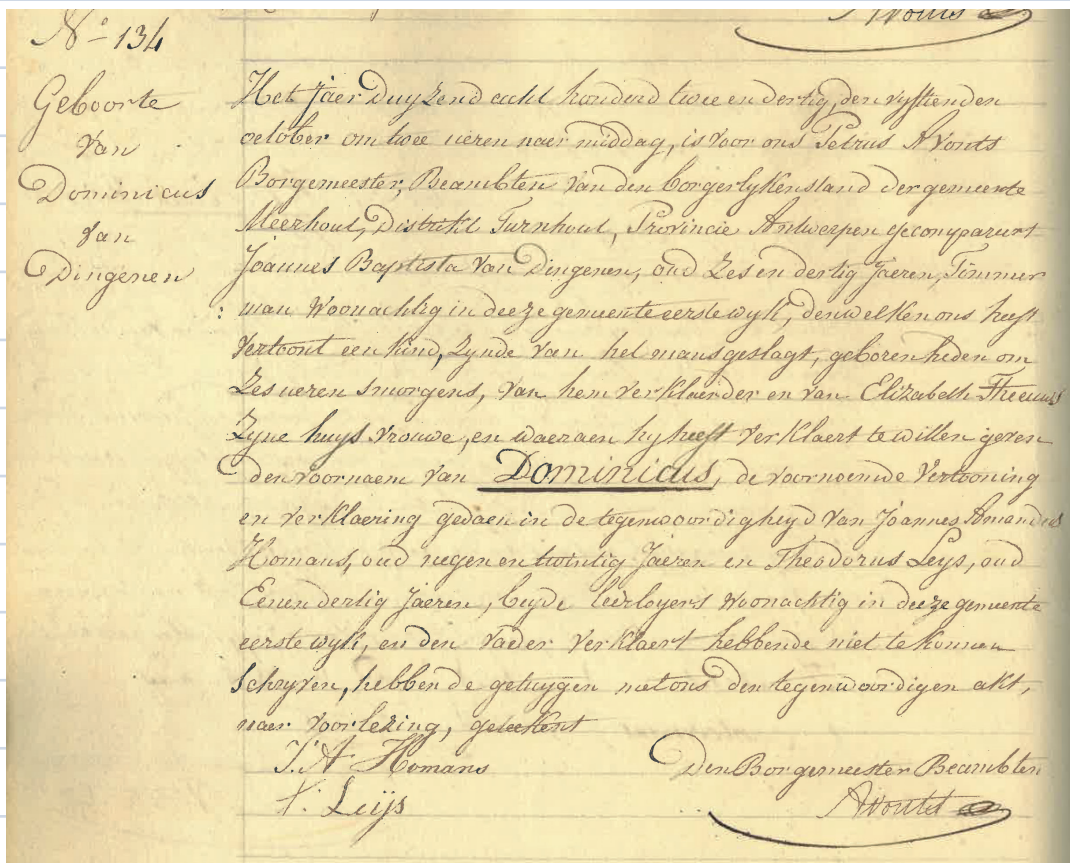 Avonts
N° 134
Geboorte
Van
Dominicus
Van
Dingenen
Het Jaer Duyzend acht honderd twee en dertig, den vyftienden
october om twee ueren naer middag, is voor ons Petrus Avonts
Borgemeester, Beambten van den borgerlyken stand der gemeente
Meerhout, Distrikt Turnhout, Provincie Antwerpen gecompareert
Joannes Baptista Van Dingenen, oud Zes en dertig Jaeren, Timmer
man Woonachtig in deeze gemeente eerste wyk, denwelken ons heeft
Vertoont een kind, Zynde van het mans geslagt, geboren heden om
Zes ueren smorgens, van hem Verklaerder en van Elizabeth Theeuws
Zyne huys vrouwe, en waeraen hy heeft Verklaert te willen geven
den voornaem van Dominicus, de voornoemde Vertooning
en verklaering gedaen in de tegenwoordigheyd van Joannes Amandus
Homans, oud negen en twintig Jaeren en Theodorus Leys, oud
Eenen dertig Jaeren, beyde leirloyers Woonachtig in deeze gemeente
eerste wyk, en den Vaeder Verklaert hebbende niet te konnen
Schryven, hebben de getuygen met ons den tegenwoordigen akt,
naer Voorlezing, geteekent
J. A Homans
T. Leijs
Den Borgemeester Beambten
Avonts